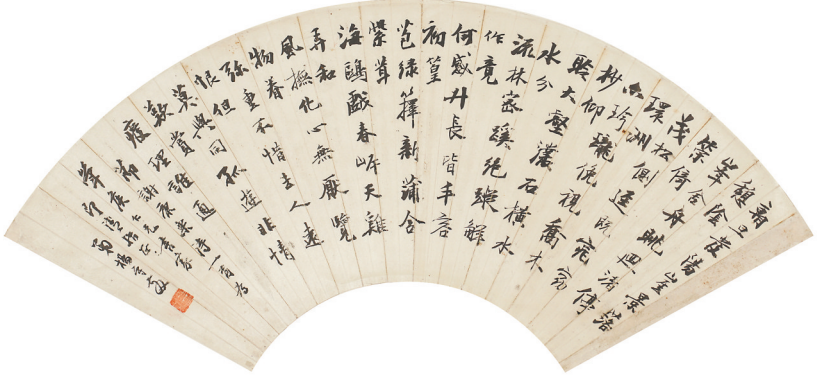 朝旦發陽崖景落
憩陰
峯舍舟眺迥渚停
策倚
茂松側逕既窈窕
環洲
亦玲瓏俛視喬木
杪仰
聆大壑灇石橫
水分
流林密蹊絕蹤解
作竟
何感升長皆丰容
初篁
苞綠籜新蒲含
紫茸
海鷗戲春岸天雞
弄和
風撫化心無厭覽
物眷
彌重不惜去人遠
但恨
莫與同孤遊非情
歎賞
廢理誰通 謝康樂詩一首為
仁兄書家
弟楊守敬